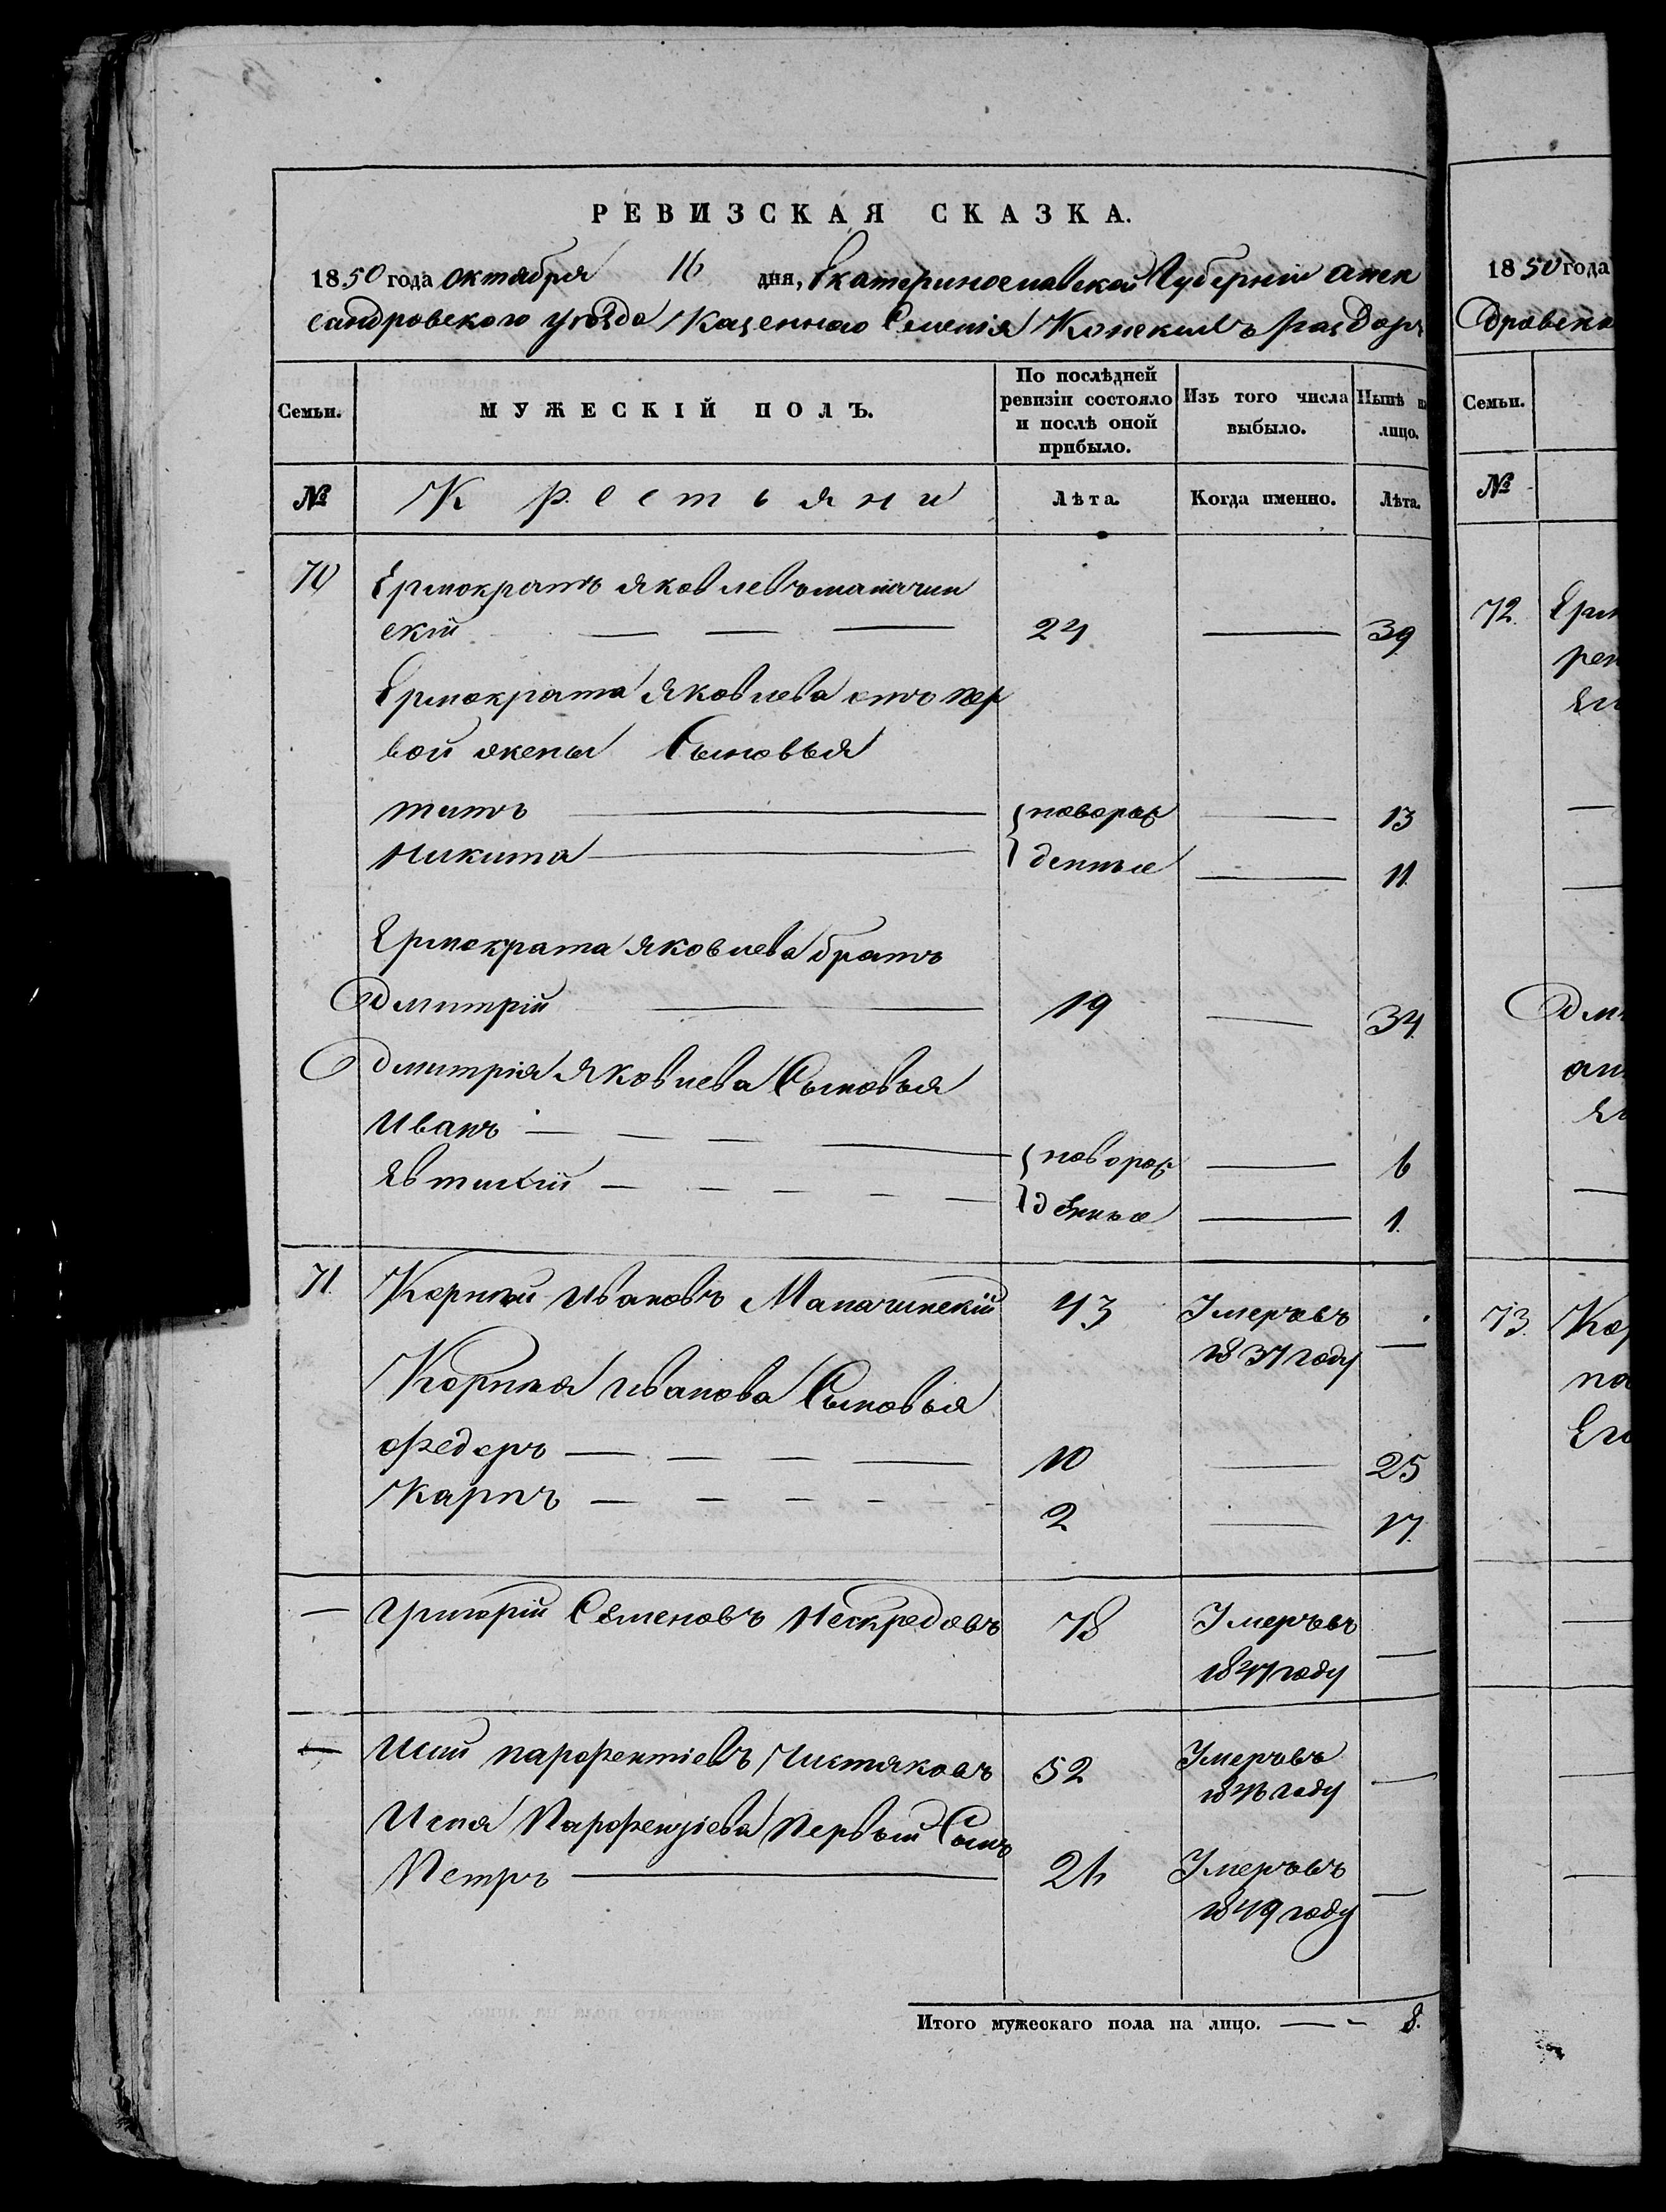 РЕВИЗСКАЯ СКАЗКА.
1850 года октября 16 дня, Екатеринославской Губернии Алек
сандровского уѣзда Казенного Селенія Конскихъ Раздоръ
Семьи. МУЖЕСКІЙ ПОЛЪ. По послѣдней ревизіи состояло и послѣ оной прибыло. Изъ того числа выбыло. Нынѣ на лицо.
№ Крестьяни Лѣта. Когда именно. Лѣта.
70 Ермократъ Яковлевъ
скій 24 39
Ермократа Яковлева отъ пер
вой жены Сыновья
Титъ новорож 13
Никита денные 11
Ермократа Яковлева братъ
Дмитрій 19 34
Дмитрія Яковлева Сыновья
Иванъ новорож 6
Явтихій денные 1
71 Корній Ивановъ 43 Умеръ въ
1837 году
Корнія Иванова Сыновья
Федоръ 10 25
Карпъ 2 17
Григорій Семеновъ 78 Умеръ въ
1847 году
Исай Парфентіевъ Чистяковъ 52 Умеръ въ
1846 году
Исая Парфентіева Первый Сынъ
Петръ 26 Умеръ въ
1849 году
Итого мужескаго пола на лицо. 8.
1850 года
дровско
Семьи.
№
72. Ерм
Дми
73. Кор